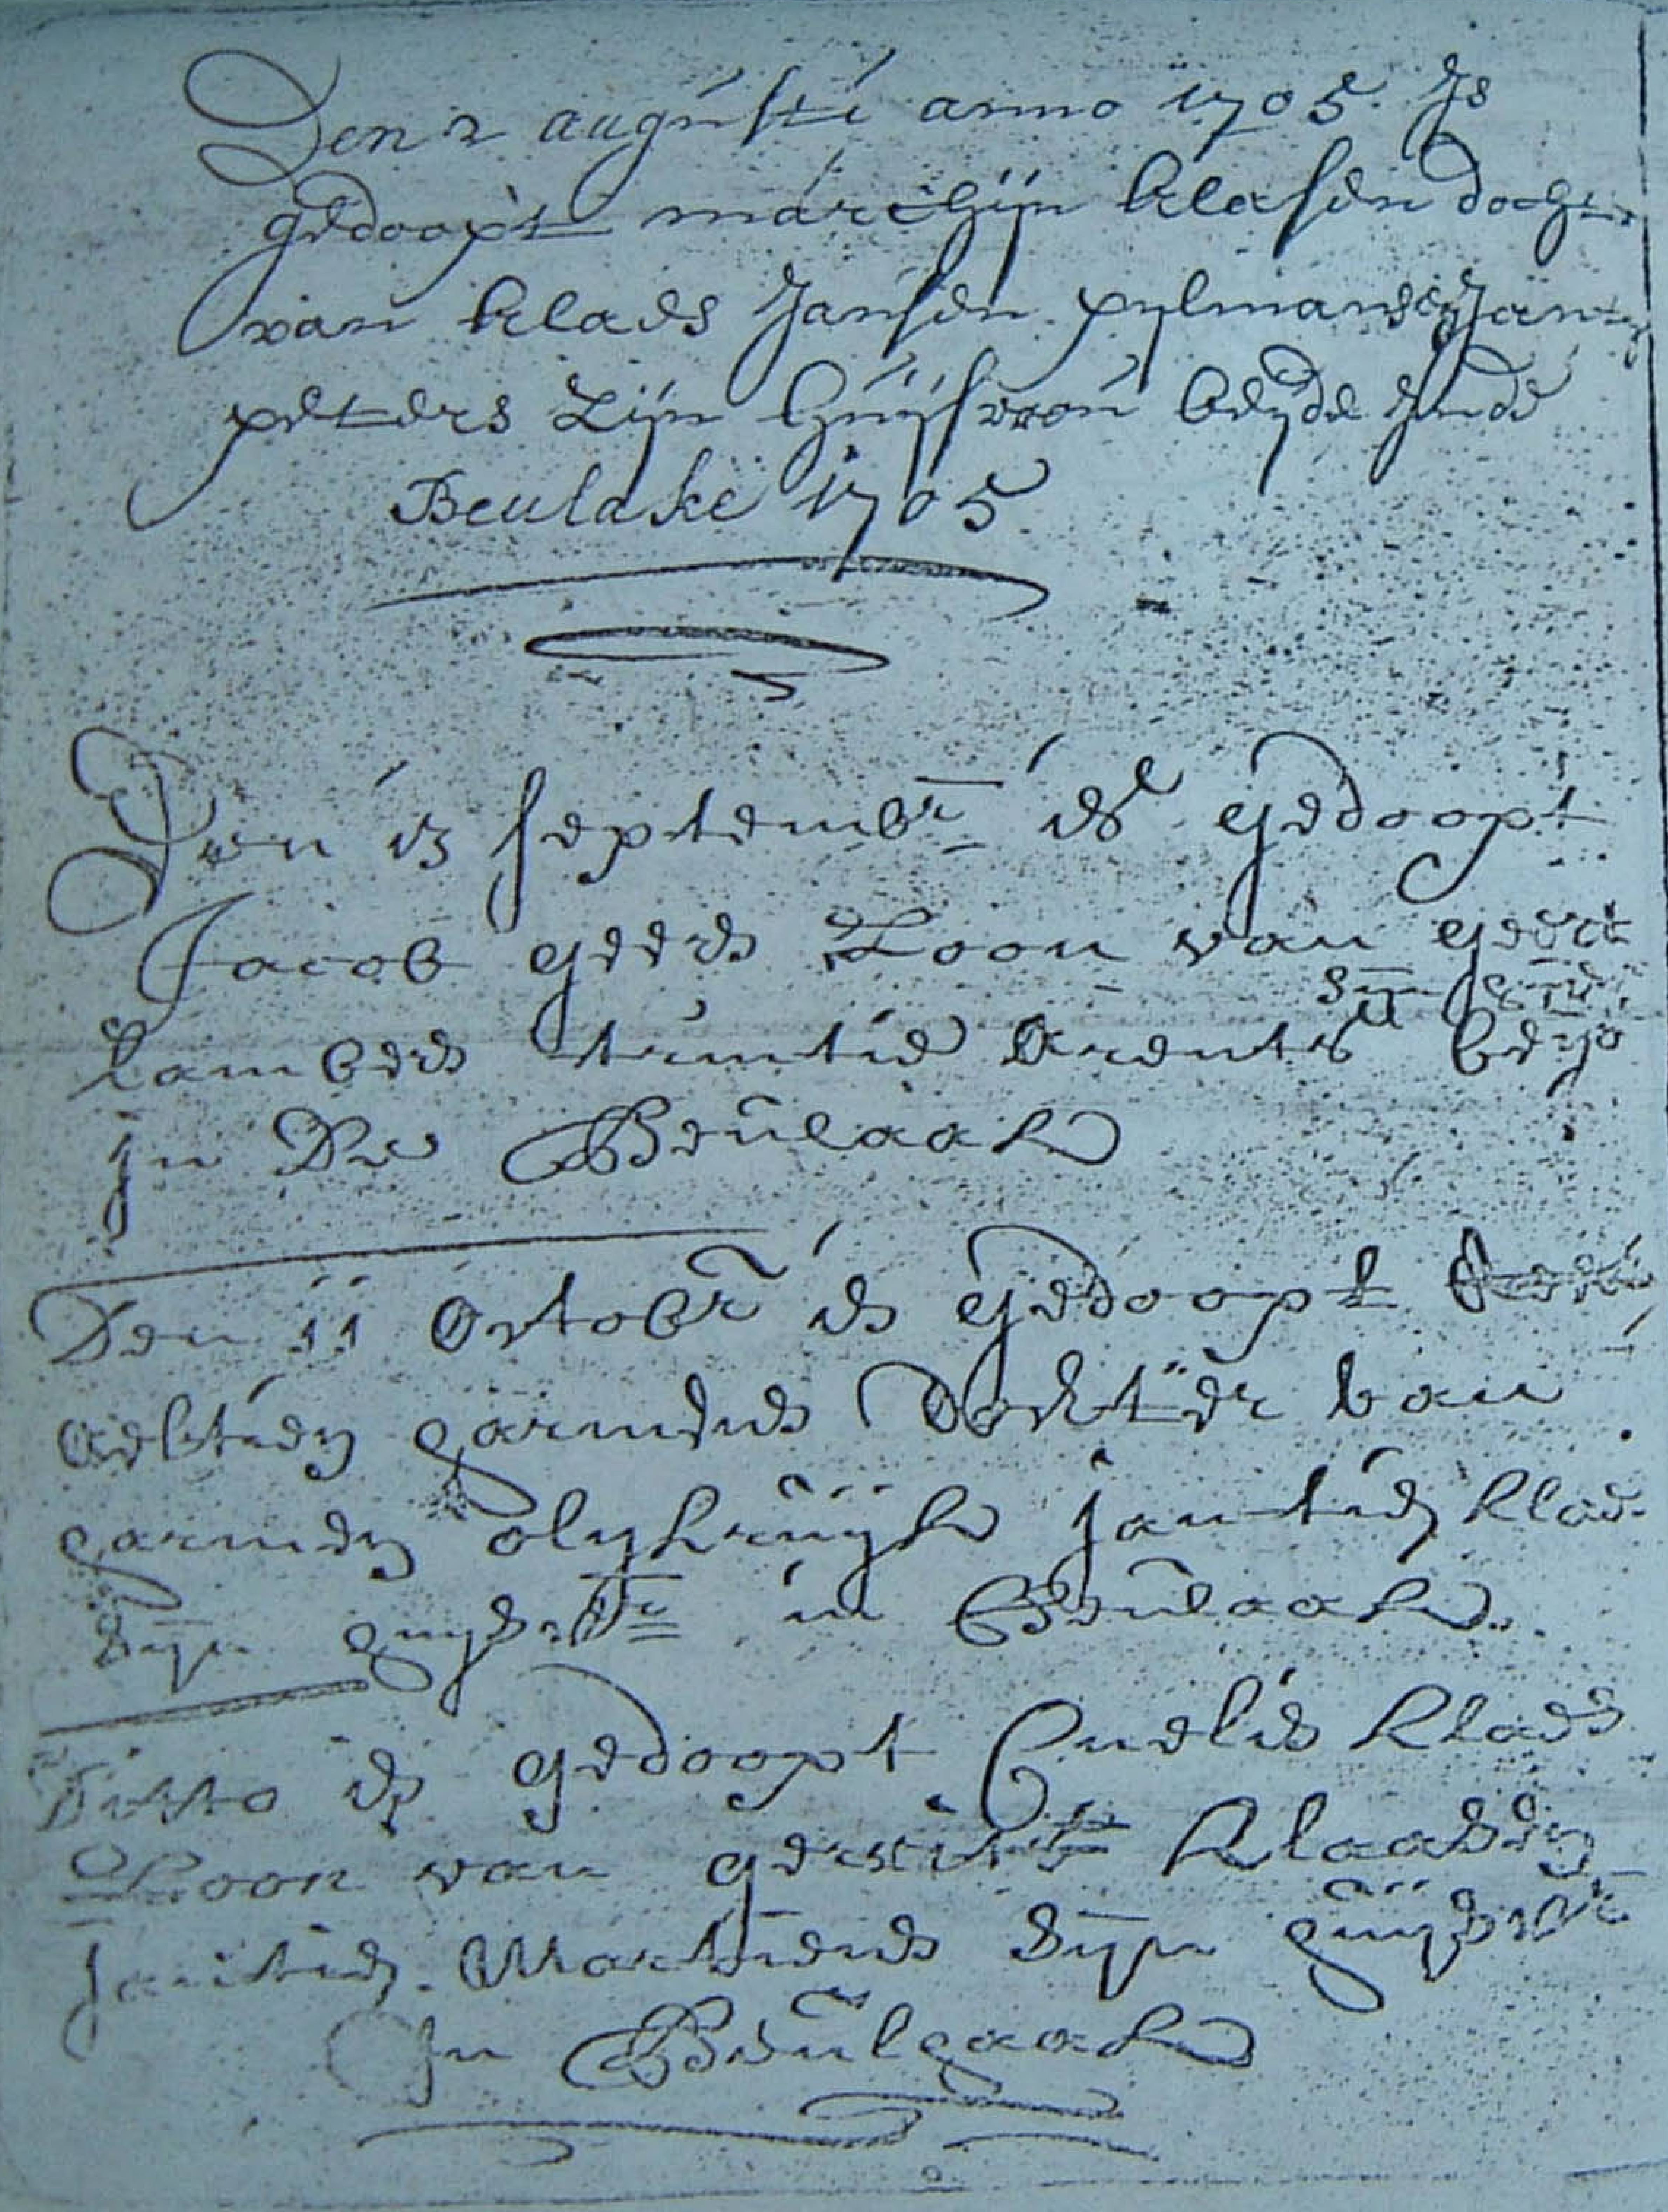 Den 2 augusti anno 1705 Js
gedoopt marchijn klasen docht
van klaes Jansen pylman en Jan
peters zijn huijsvrou beijde Jnde
Beulake 1705
Den 13 septembr is gedoopt
Jacob geers Zoon van geert
sijn
Lambers trintie Arents beijd
Jn De Beulaake
Den 11 Octobr is gedoopt
Aeltien harmens Dochter van
harmen olykruyk jantien klas
Sijn huysvr in Beulaake
Ditto is gedoopt Cnelis Klaes
Zoon van Klaassen
Jantien Martiens Sijn huijsvr
Jn Beulaake